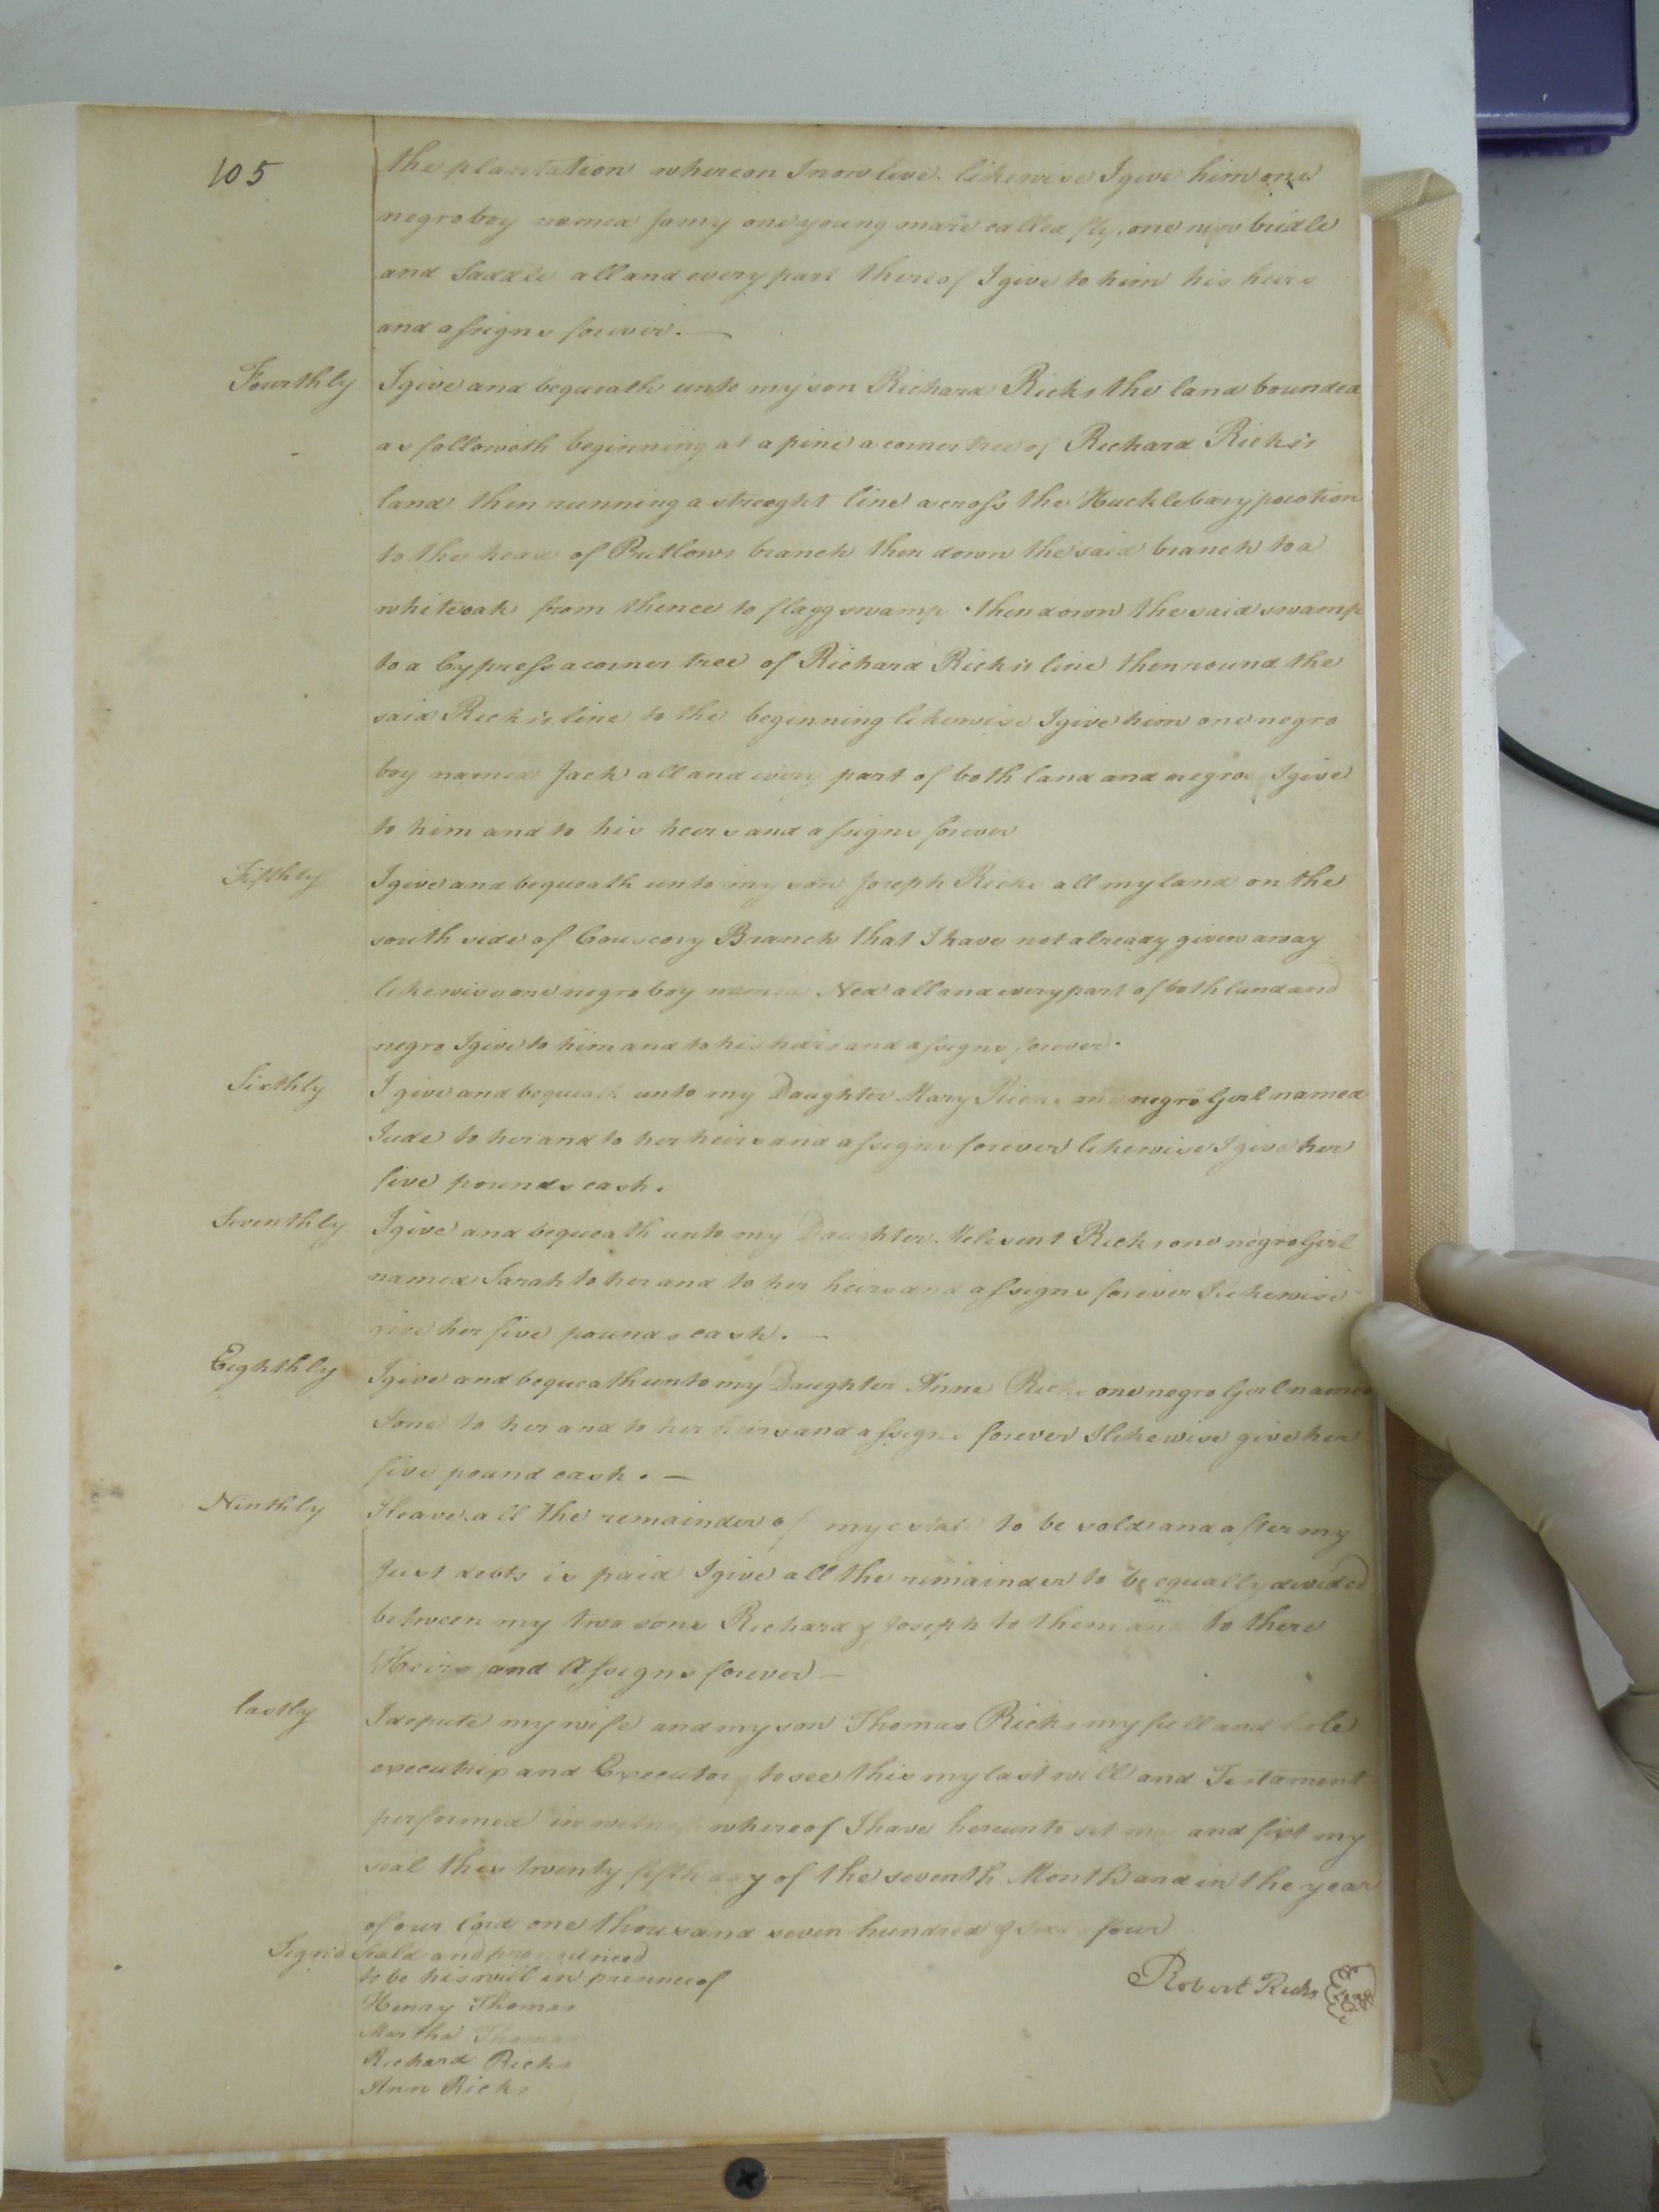 105
the plantation whereon I now live. likewise I give him one
negro boy named Jamy one young mare called fly, one new bridle
and Saddle all and every part thereof I give to him his heirs
and assigns forever.—
Fourthly I give and bequeath unto my son Richard Ricks the land bounded
as followeth beginning at a pine a corner tree of Richard Ricks's
land then running a streeght line across the Hucklebary pocotion
to the head of Putlows branch then down the said branch to a
white oak from thence to flagg swamp then down the said swamp
to a Cypress a corner tree of Richard Ricks's line then round the
said Ricks's line to the beginning likewise I give him one negro
boy named Jack all and every part of both land and negro I give
to him and to his heirs and assigns forever
Fifthly I give and bequeath unto my son Joseph Ricks all my land on the
south side of Branch that I have not already given away
likewise one negro boy named Ned all and every part of both land and
negro I give to him and to his heirs and assigns forever.
Sixthly I give and bequeath unto my Daughter Mary Ricks one negro Girl named
Jude to her and to her heirs and assigns forever likewise I give her
five pounds cash.
Seventhly I give and bequeath unto my Daughter Melesent Ricks one negro Girl
named Sarah to her and to her heirs and assigns forever I likewise
give her five pounds cash.—
Eighthly I give and bequeath unto my Daughter Anne Ricks one negro Girl named
Jone to her and to her heirs and assigns forever I likewise give her
five pound cash.—
Ninthly I leave all the remainder of my estate to be sold and after my
Just debts is paid I give all the remainder to be equally devided
between my two sons Richard & Joseph to them and to there
Heirs and Assigns forever—
lastly I depute my wife and my son Thomas Ricks my full and sole
executrix and Executor to see this my last will and Testament
performed in witness whereof I have hereunto set my and fixt my
seal this twenty fifth day of the seventh Month and in the year
of our Lord one thousand seven hundred & four
Signd Seald and pronounced
to be his will in presence of
Robert Ricks Seal
Henry Thomas
Martha Thomas
Richard Ricks
Ann Ricks